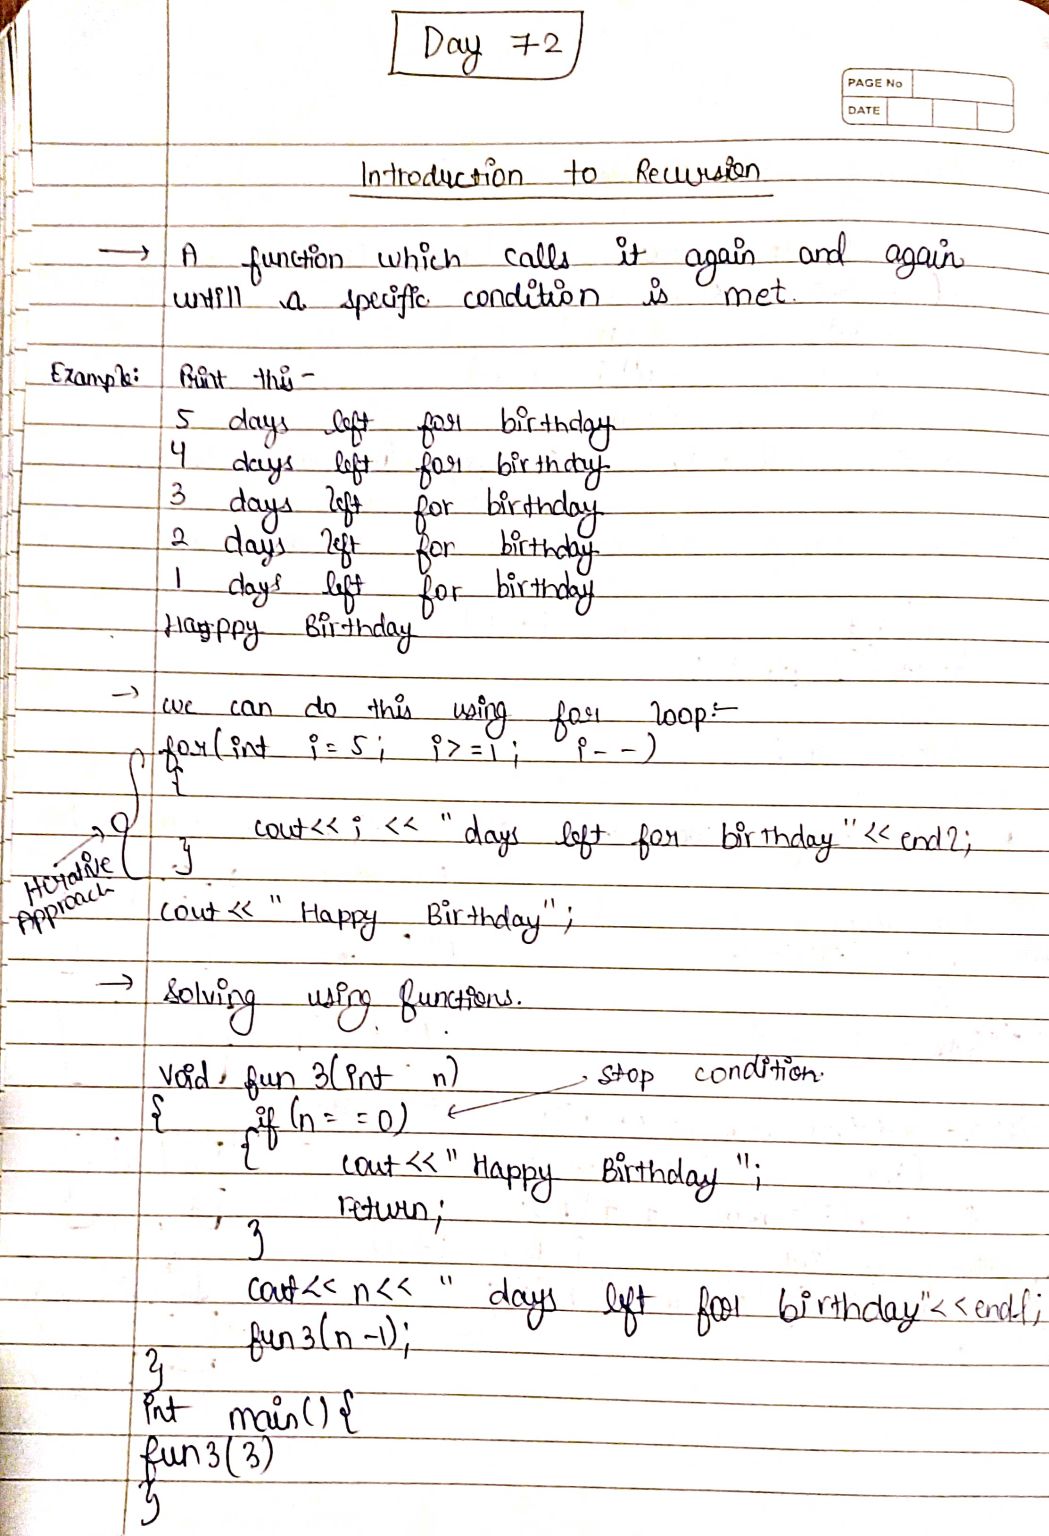 Day 72
PAGE No
DATE
Introduction to Recursion
→ A function which calls it again and again
untill a specific condition is met.
Example: Print this -
5 days left for birthday
4 days left for birthday
3 days left for birthday
2 days left for birthday
1 days left for birthday
Happy Birthday
→ we can do this using for loop:-
for(int i = 5; i>=1; i--)
{
cout<< i << " days left for birthday" << endl;
}
Iterative
Approach
cout << " Happy Birthday";
→ Solving using functions.
void fun 3(int n)
stop condition.
{ if (n = = 0)
{ cout << " Happy Birthday ";
return;
}
cout<< n<< " days left for birthday"<<endl;
fun3(n-1);
}
int main() {
fun3(3)
}